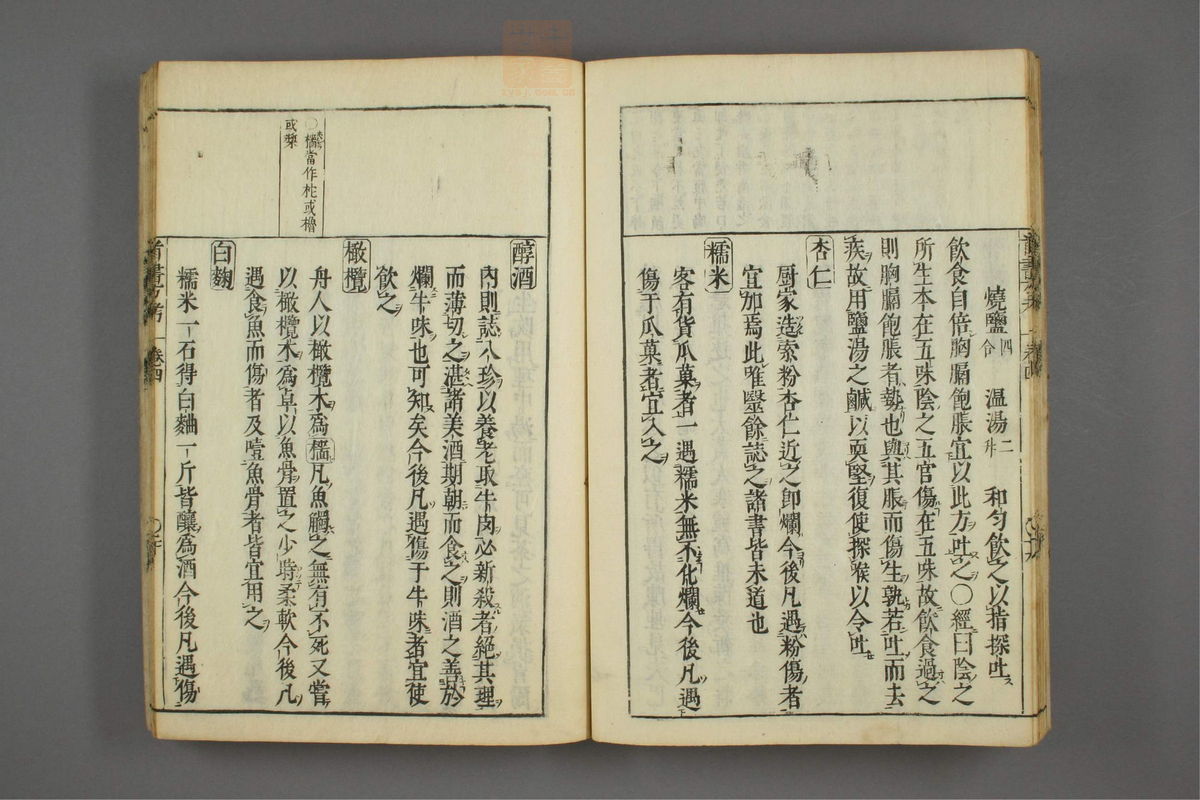 燒鹽四合 温湯二升 和勻飲之以指探吐
飲食自倍胸膈飽脹宜以此方吐之〇經曰陰之
所生本在五味陰之五官傷在五味故飲食過之
則胸膈飽脹者勢也與其脹而傷生孰若吐而去
疾故用鹽湯之鹹以耎堅復使探喉以令吐
杏仁
厨家造索粉杏仁近之卽爛今後凡遇粉傷者
宜加焉此唯毉餘誌之諸書皆未道也
糯米
客有貨瓜菓者一遇糯米無不化爛今後凡遇
傷于瓜菓者宜入之
醇酒
內則誌八珍以養老取牛肉必新殺者絕其理
而薄切之湛諸美酒期朝而食之則酒之善於
爛牛味也可知矣今後凡遇傷于牛味者宜使
飲之
橄欖
舟人以橄欖木爲橘凡魚觸之無有不死又嘗
以橄欖木爲卓以魚骨置之少時柔軟今後凡
遇食魚而傷者及噎魚骨者皆宜用之
白麴
糯米一石得白麯一斤皆釀爲酒今後凡遇傷
〇橘當作柁或櫓
或槳
卷四